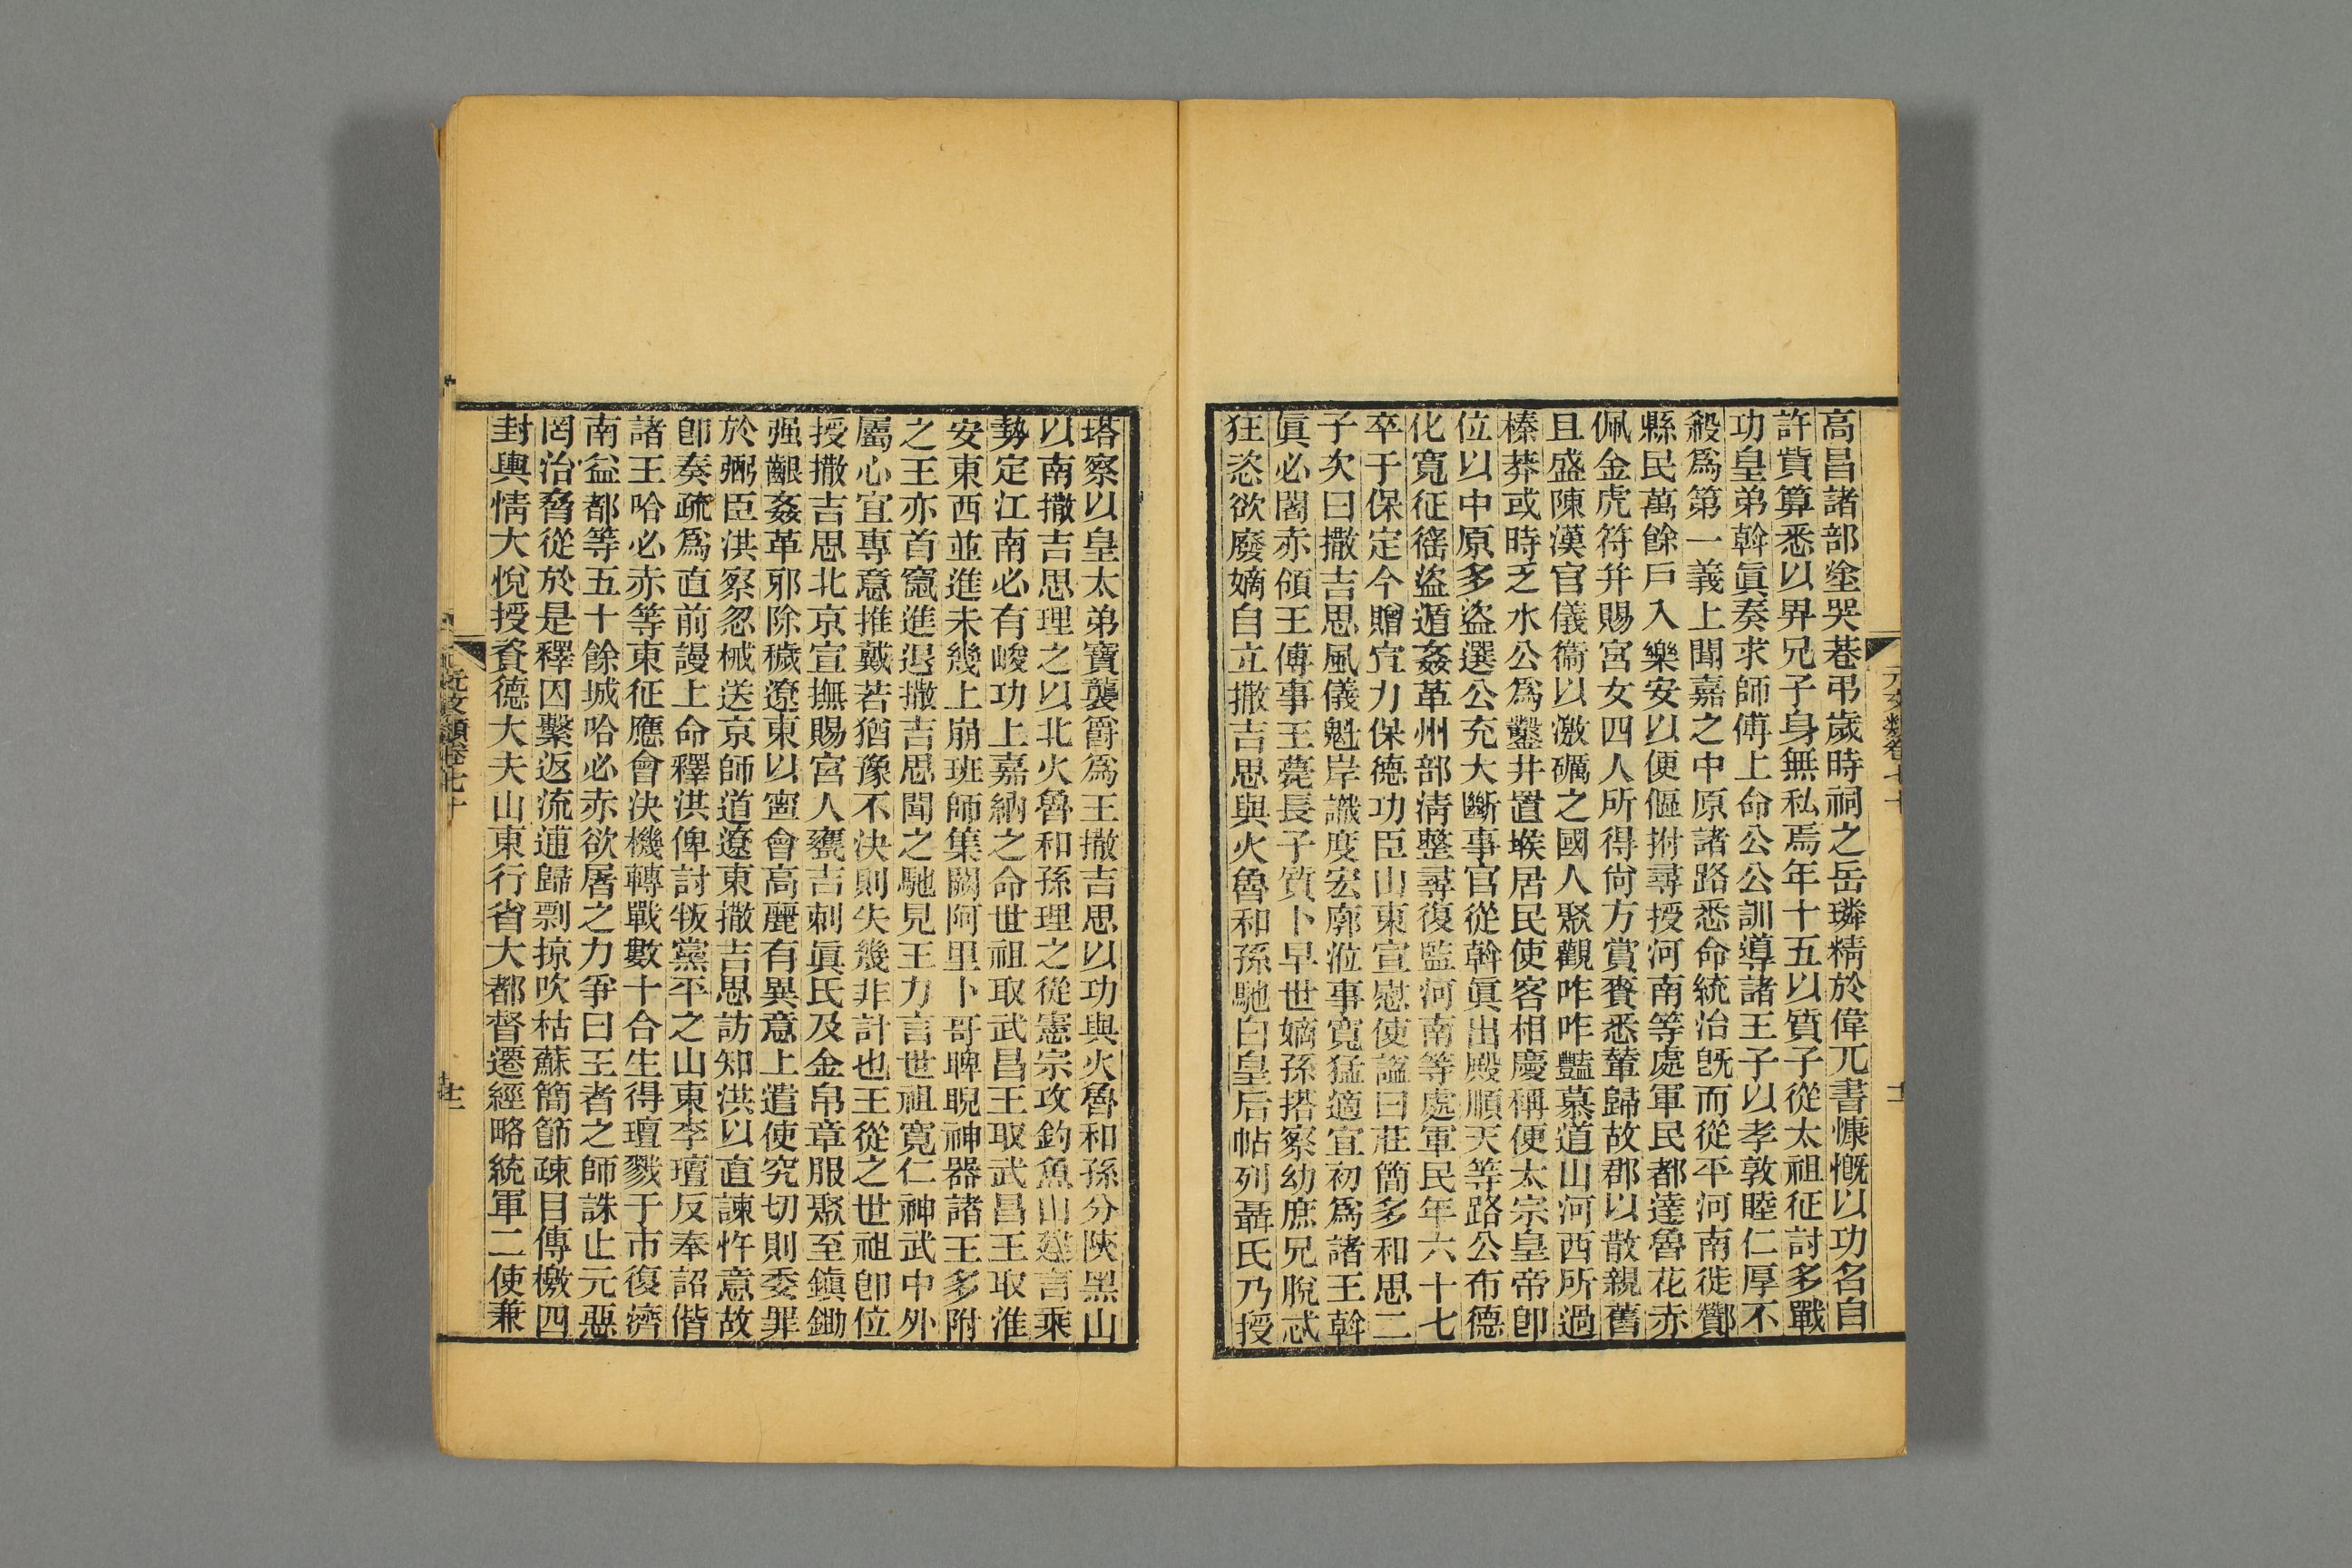 高昌諸部塗哭巷弔歲時祠之岳璘精於偉兀書慷慨以功名自
許貲算悉以畀兄子身無私焉年十五以質子從太祖征討多戰
功皇弟斡眞奏求師傅上命公公訓導諸王子以孝敦睦仁厚不
殺爲第一義上聞嘉之中原諸路悉命統治旣而從平河南徙酇
縣民萬餘戶入樂安以便傴拊尋授河南等處軍民都達魯花赤
佩金虎符幷賜宮女四人所得尙方賞賚悉輦歸故郡以散親舊
且盛陳漢官儀衞以激礪之國人聚觀咋咋豔慕道山河西所過
榛莽或時乏水公爲鑿井置堠居民使客相慶稱便太宗皇帝卽
位以中原多盜選公充大斷事官從斡眞出殿順天等路公布德
化寬征徭盜遁姦革州部淸整尋復監河南等處軍民年六十七
卒于保定今贈宣力保德功臣山東宣慰使謚曰莊簡多和思二
子次曰撒吉思風儀魁岸識度宏廓涖事寬猛適宜初爲諸王斡
眞必闍赤領王傅事王薨長子質卜早世嫡孫搭察幼庶兄脫忒
狂恣欲廢嫡自立撒吉思與火魯和孫馳白皇后帖列聶氏乃授
塔察以皇太弟寶襲爵爲王撒吉思以功與火魯和孫分陝黑山
以南撒吉思理之以北火魯和孫理之從憲宗攻釣魚山建言乘
勢定江南必有峻功上嘉納之命世祖取武昌王取武昌王取淮
安東西並進未幾上崩班師集闕阿里卜哥睥睨神器諸王多附
之王亦首竄進退撒吉思聞之馳見王力言世祖寬仁神武中外
屬心宜專意推戴若猶豫不決則失幾非計也王從之世祖卽位
授撒吉思北京宣撫賜宮人甕吉剌眞氏及金帛章服聚至鎭鋤
强齦姦革邪除穢遼東以寧會高麗有異意上遣使究切則委罪
於弼臣洪察忽械送京師道遼東撒吉思訪知洪以直諫忤意故
卽奏疏爲直前謾上命釋洪俾討叛黨平之山東李璮反奉詔偕
諸王哈必赤等東征應會決機轉戰數十合生得璮戮于市復濟
南益都等五十餘城哈必赤欲屠之力爭曰王者之師誅止元惡
罔治脅從於是釋囚繫返流逋歸剽掠吹枯蘇簡節疎目傳檄四
封輿情大悅授資德大夫山東行省大都督遷經略統軍二使兼